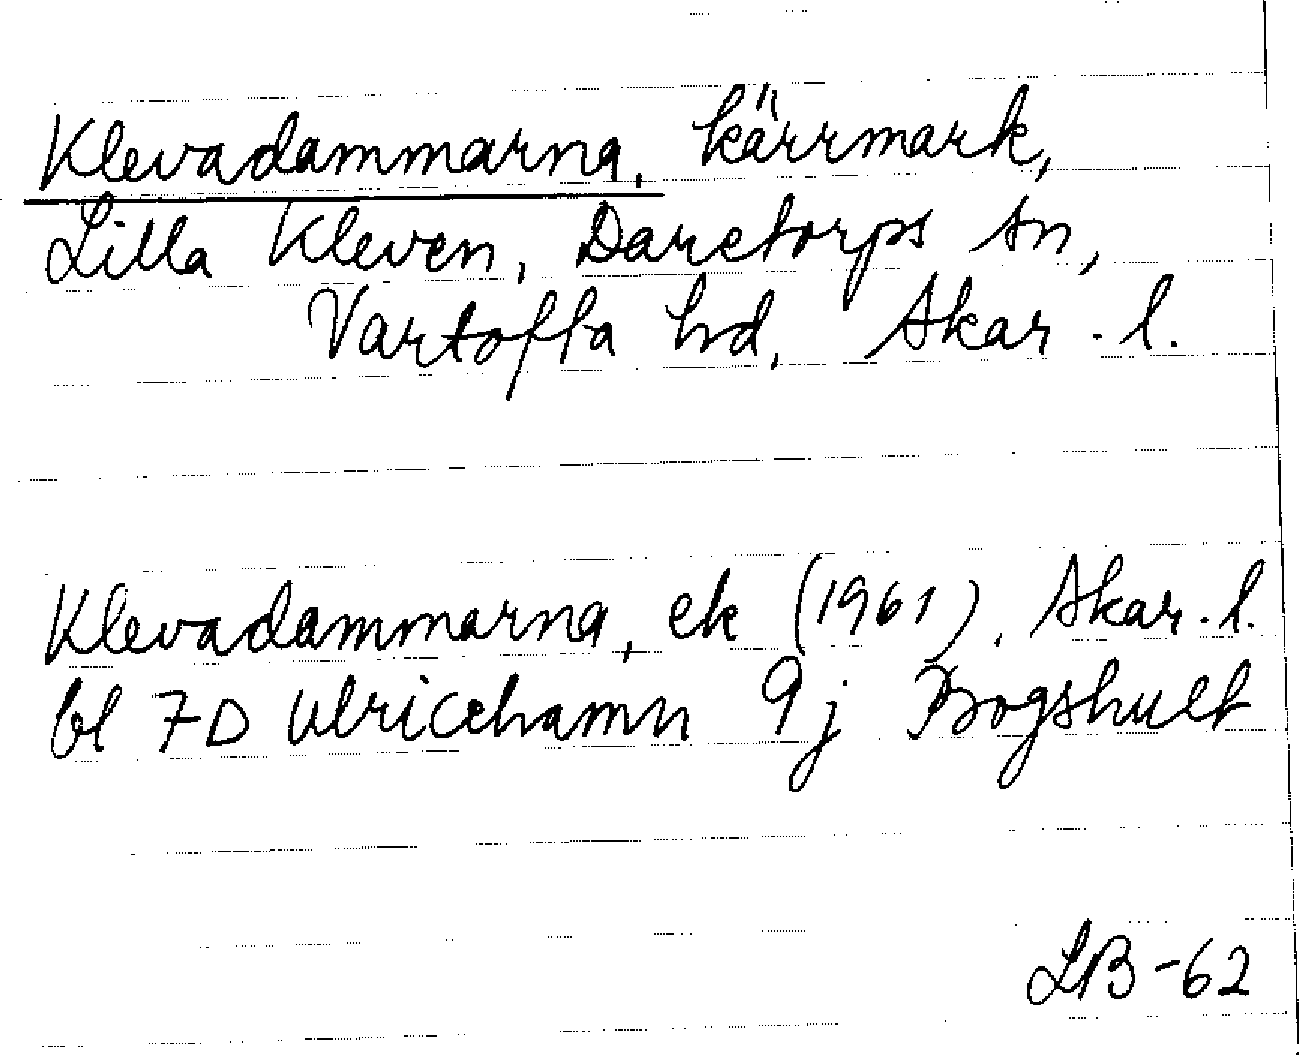 Klevadammarna, kärrmark,
Lilla Kleven, Daretorps sn,
Vartofta hd, Skar. l.
Klevadammarna, ek (1961), Skar. l.
bl 7D Ulricehamn 9j Brogshult
LB-62